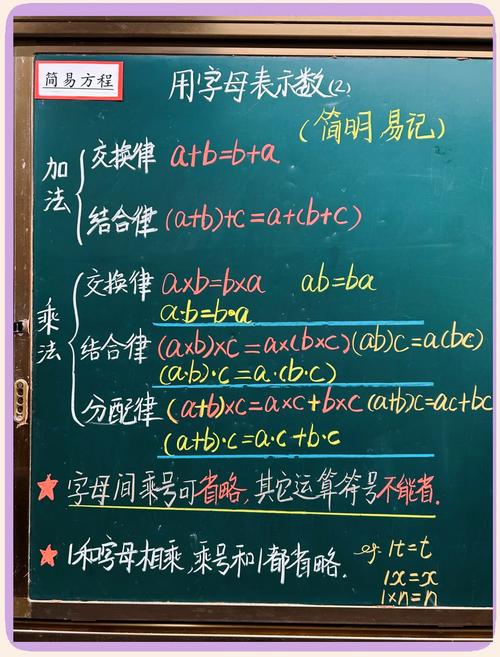 简易方程
用字母表示数(2)
(简明 易记)
加法
交换律 a+b=b+a
结合律 (a+b)+c=a+(b+c)
乘法
交换律 a×b=b×a ab=ba
a·b=b·a
结合律 (a×b)×c=a×(b×c) (ab)c=a(bc)
(a·b)·c=a·(b·c)
分配律 (a+b)×c=a×c+b×c (a+b)c=ac+bc
(a+b)·c=a·c+b·c
★ 字母间乘号可省略,其它运算符号不能省.
★ 1和字母相乘,乘号和1都省略. eg: 1t=t
1x=x
1×n=n